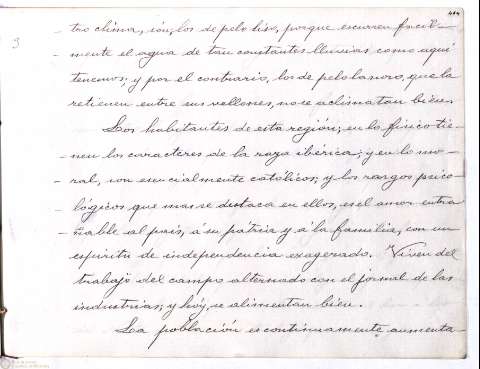 484
3
- tro clima, son, los de pelo liso, porque escurren facil-
- mente el agua de tan constantes lluvias como aquí
tenemos; y por el contrario, los de pelo lanoso, que la
retienen entre sus vellones, no se aclimatan bien.
Los habitantes de esta región, en lo físico tie-
- nen los caracteres de la raza ibérica; y en lo mo-
- ral, son esencialmente católicos; y los rasgos psico-
lógicos que mas se destaca en ellos, es el amor entra-
- ñable al país, á su pátria y á la familia, con un
espíritu de independencia exagerado. Viven del
trabajo del campo alternado con el jornal de las
industrias; y hoy, se alimentan bien.
La población es contínuamente aumenta-